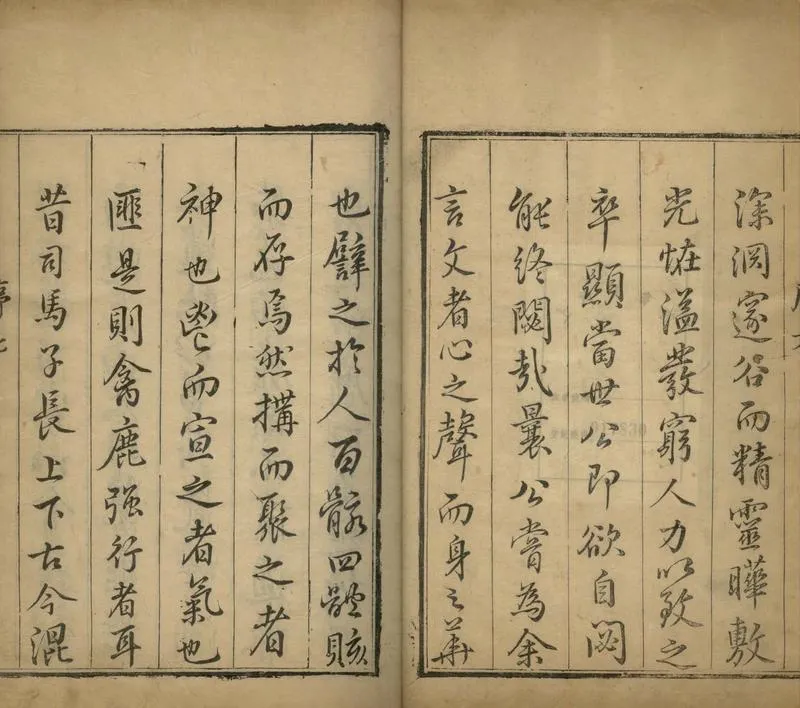 深洞邃谷而精靈曄敷
光恠溢發窮人力以致之
卒顯當世公即欲自閟
能終閟哉曩公嘗為余
言文者心之聲而身之華
也譬之於人百骸四體賅
而存焉然搆而聚之者
神也鬯而宣之者氣也
匪是則禽鹿强行者耳
昔司馬子長上下古今混